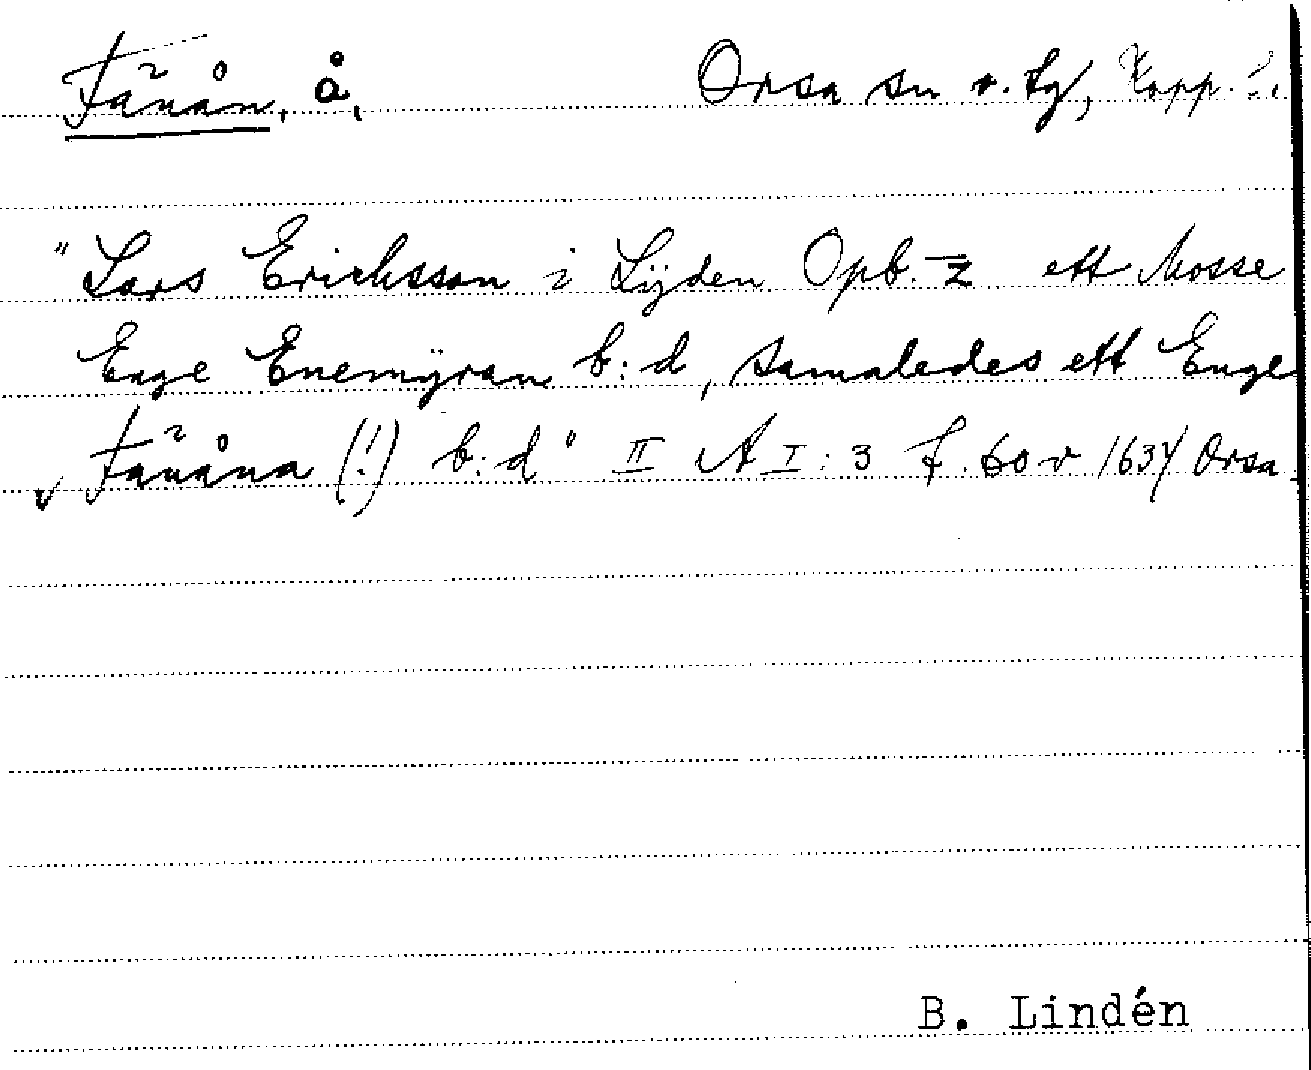 Fänån, å, Orsa sn o. tg, Kopp. l.
"Lars Ericksson i Lÿden Opb. z ett Mosse
Enge Enemÿran b:d, samaledes ett Enge
Fänåna (!) b:d" II A I:3 f. 60 v 1637 Orsa
B. Lindén